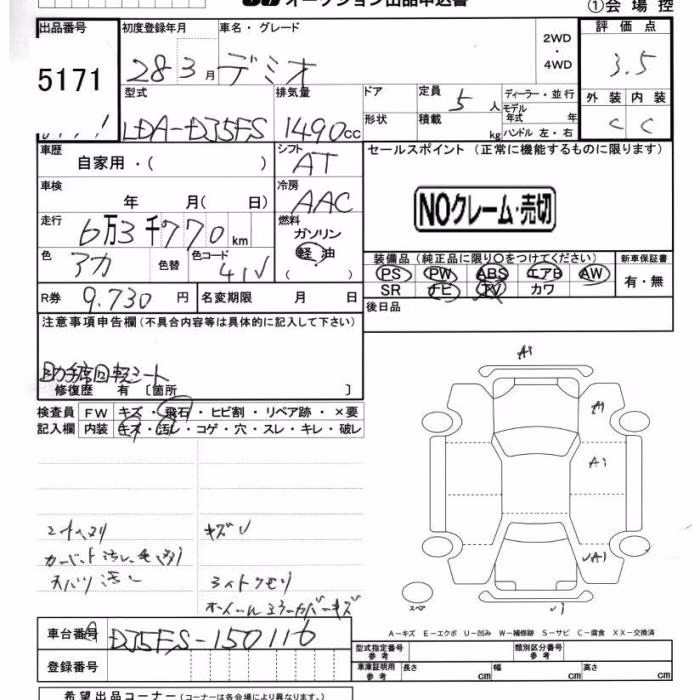 オークション出品申込書
①会場控
出品番号 初度登録年月 車名・グレード 評価点
5171 28 3月 デミオ 2WD・4WD 3.5
型式 排気量 ドア 定員 5人 ディーラー・並行 外装 内装
LDA-DJ5FS 1490cc 形状 積載 kg モデル年式 年式 ハンドル 左・右 C C
車歴 自家用・( ) シフト AT セールスポイント (正常に機能するものに限ります)
車検 年 月( 日) 冷房 AAC
NOクレーム・売切
走行 6万3千770km 燃料 ガソリン 軽・油 ( )
色 アカ 色替 色コード 41V
装備品 (純正品に限り〇をつけてください) 新車保証書
PS PW ABS エアB AW 有・無
SR ナビ TV カワ
R券 9.730円 名変期限 月 日 後日品
注意事項申告欄 (不具合内容等は具体的に記入して下さい)
助手席回転シート
修復歴 有 〔箇所 〕
検査員記入欄 FW キズ・飛石・ヒビ割・リペア跡・×要
内装 キズ・汚レ・コゲ・穴・スレ・キレ・破レ
A1
A1
A1
キズU
天バリ汚レ
ホイールカバーキズ
スペア
A-キズ E-エクボ U-凹み W-補修跡 S-サビ C-腐食 XX-交換済
車台番号 DJ5FS-150116
登録番号
型式指定番号 参考 類別区分番号 参考
車庫証明用 参考 長さ cm 幅 cm 高さ cm
希望出品コーナー (コーナーは各会場により異なります。)